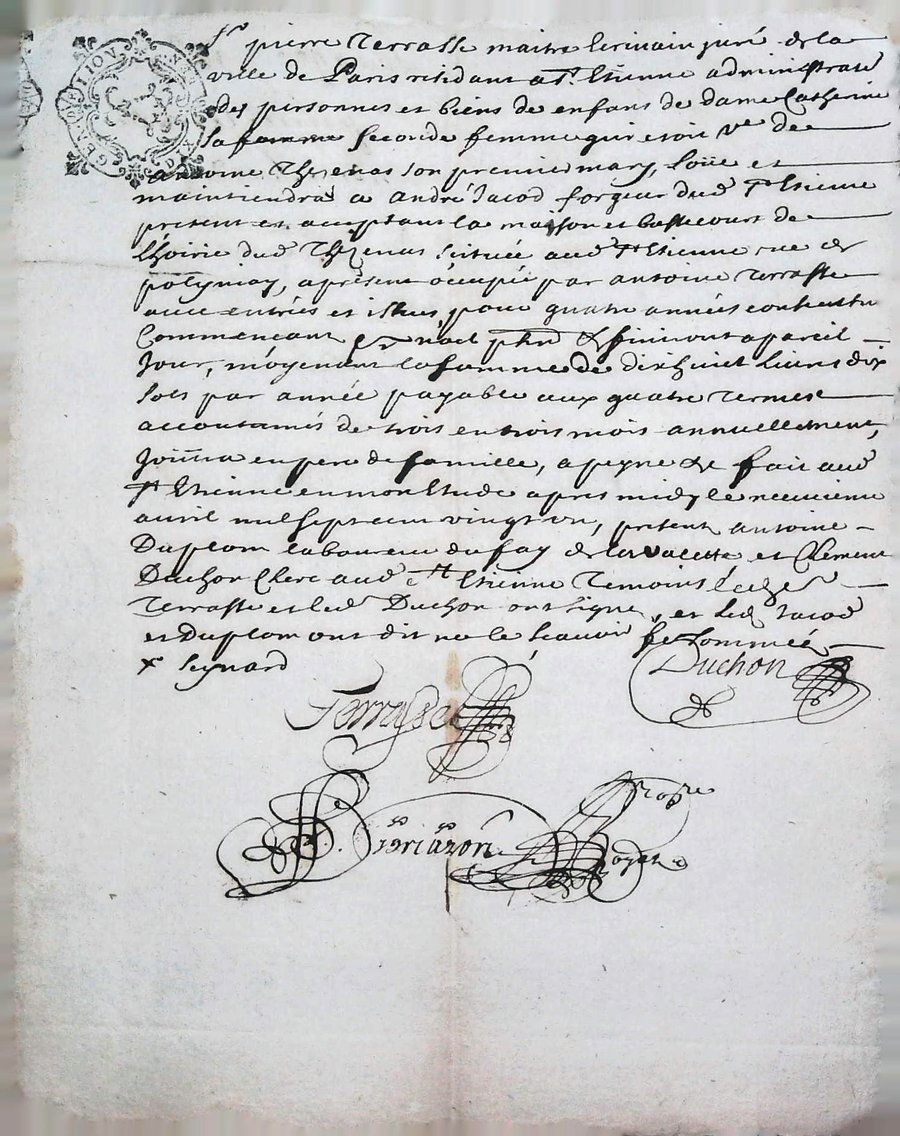 Sr pierre Terrasse maitre Ecrivain juré de la
ville de Paris residant a St Etienne administrate
des personnes et biens de enfans de dame Catherine
sa femme seconde femme qui etoit ve de
antoine Thezenas son premier mary, loüe et
maintiendra a andré Jacod forgeur dud St Etienne
present et aceptant la maison et bassecourt de
lhoirie dud Thezenas scituée aud St Etienne rue de
polignay, apresent occupée par antoine Terrasse
avec entrées et issues, pour quatre années
Commencant noel et finiront a pareil
Jour, moyenant la somme de dix huict livres dix
sols par année payable aux quatre termes
accoutumés de trois en trois mois annuellement,
Joüira en pere de famille, a peyne &c fait aud
St Etienne en mon Etude apres midy le neuvieme
avril mil sept cent vingt un, present antoine
Duplom laboureur du fay de la valette et Clement
Duchon Clerc aud St Etienne Temoins led sr
Terrasse et led Duchon ont signé, et led Jacod
et Duplom ont dit ne le scavoir sommée
Duchon
Terrasse